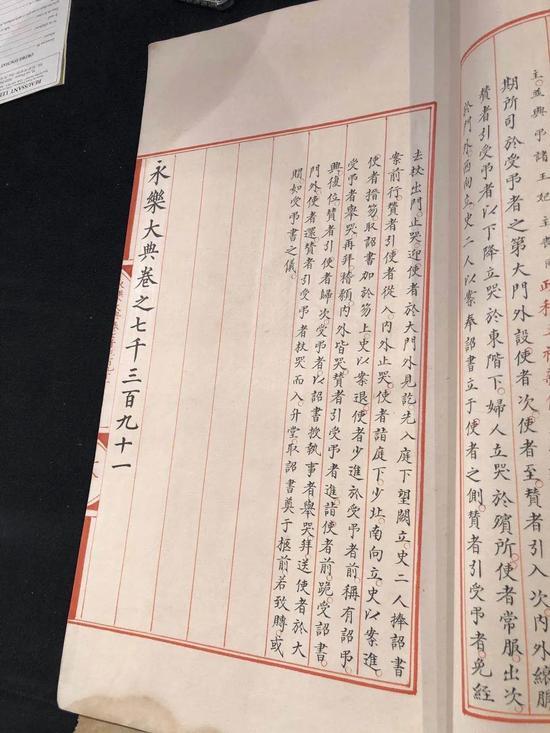 主並興諸王妃主喪
期所司於受弔者之第大門外設使者次使者至贊者引入次內外縗服
贊者引受弔者以下降立哭於東階下婦人立哭於殯所使者常服出次
於門外西向立史二人以案奉詔書立于使者之側贊者引受弔者免絰
去杖出門止哭迎使者於大門外見訖先入庭下望闕立史二人捧詔書
案前行贊者引使者從入內外止哭使者詣庭下少北南向立史以案進
使者搢笏取詔書加於笏上史以案退使者少進於受弔者前稱有詔弔
受弔者舉哭再拜稽顙內外皆哭贊者引受弔者進詣使者前跪受詔書
興復位贊者引使者歸次受弔者以詔書授執事者舉哭拜送使者於大
門外使者還贊者引受弔者杖哭而入升堂取詔書奠于柩前若致賻或
賵如受弔書之儀
永樂大典卷之七千三百九十一
BEAUSSANT LEF